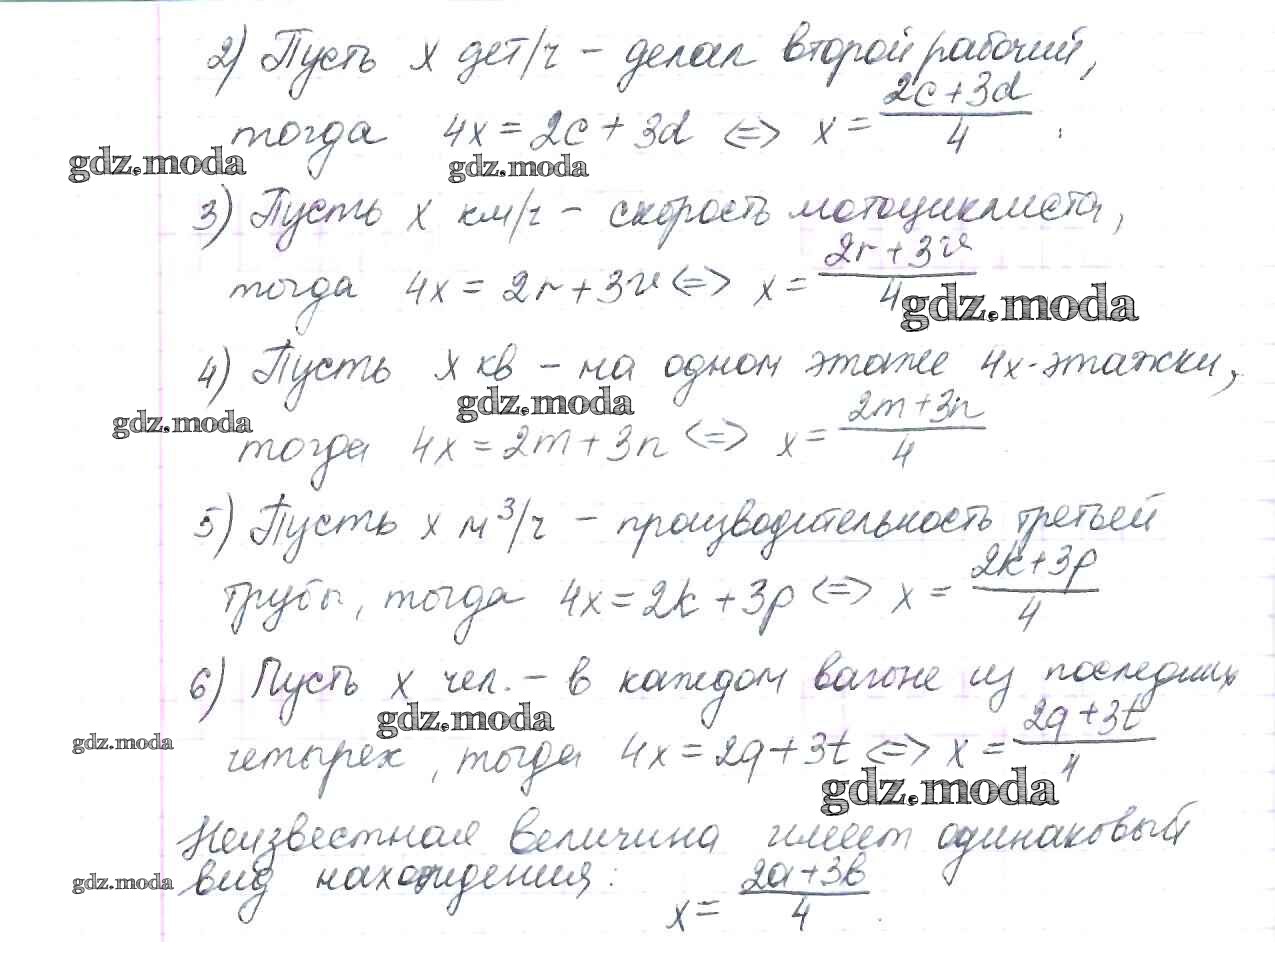 2) Пусть x дет/ч – делал второй рабочий,
тогда 4x = 2c + 3d <=> x = (2c+3d)/4 .
gdz.moda gdz.moda
3) Пусть x км/ч – скорость мотоциклиста,
тогда 4x = 2r + 3v <=> x = (2r+3v)/4
gdz.moda
4) Пусть x кв – на одном этаже 4x-этажки,
gdz.moda gdz.moda
тогда 4x = 2m + 3n <=> x = (2m+3n)/4
5) Пусть x м³/ч – производительность третьей
трубы, тогда 4x = 2k + 3p <=> x = (2k+3p)/4
6) Пусть x чел. – в каждом вагоне из последних
gdz.moda
gdz.moda
четырех, тогда 4x = 2q + 3t <=> x = (2q+3t)/4
gdz.moda
Неизвестная величина имеет одинаковый
gdz.moda
вид нахождения:
x = (2a+3b)/4 .